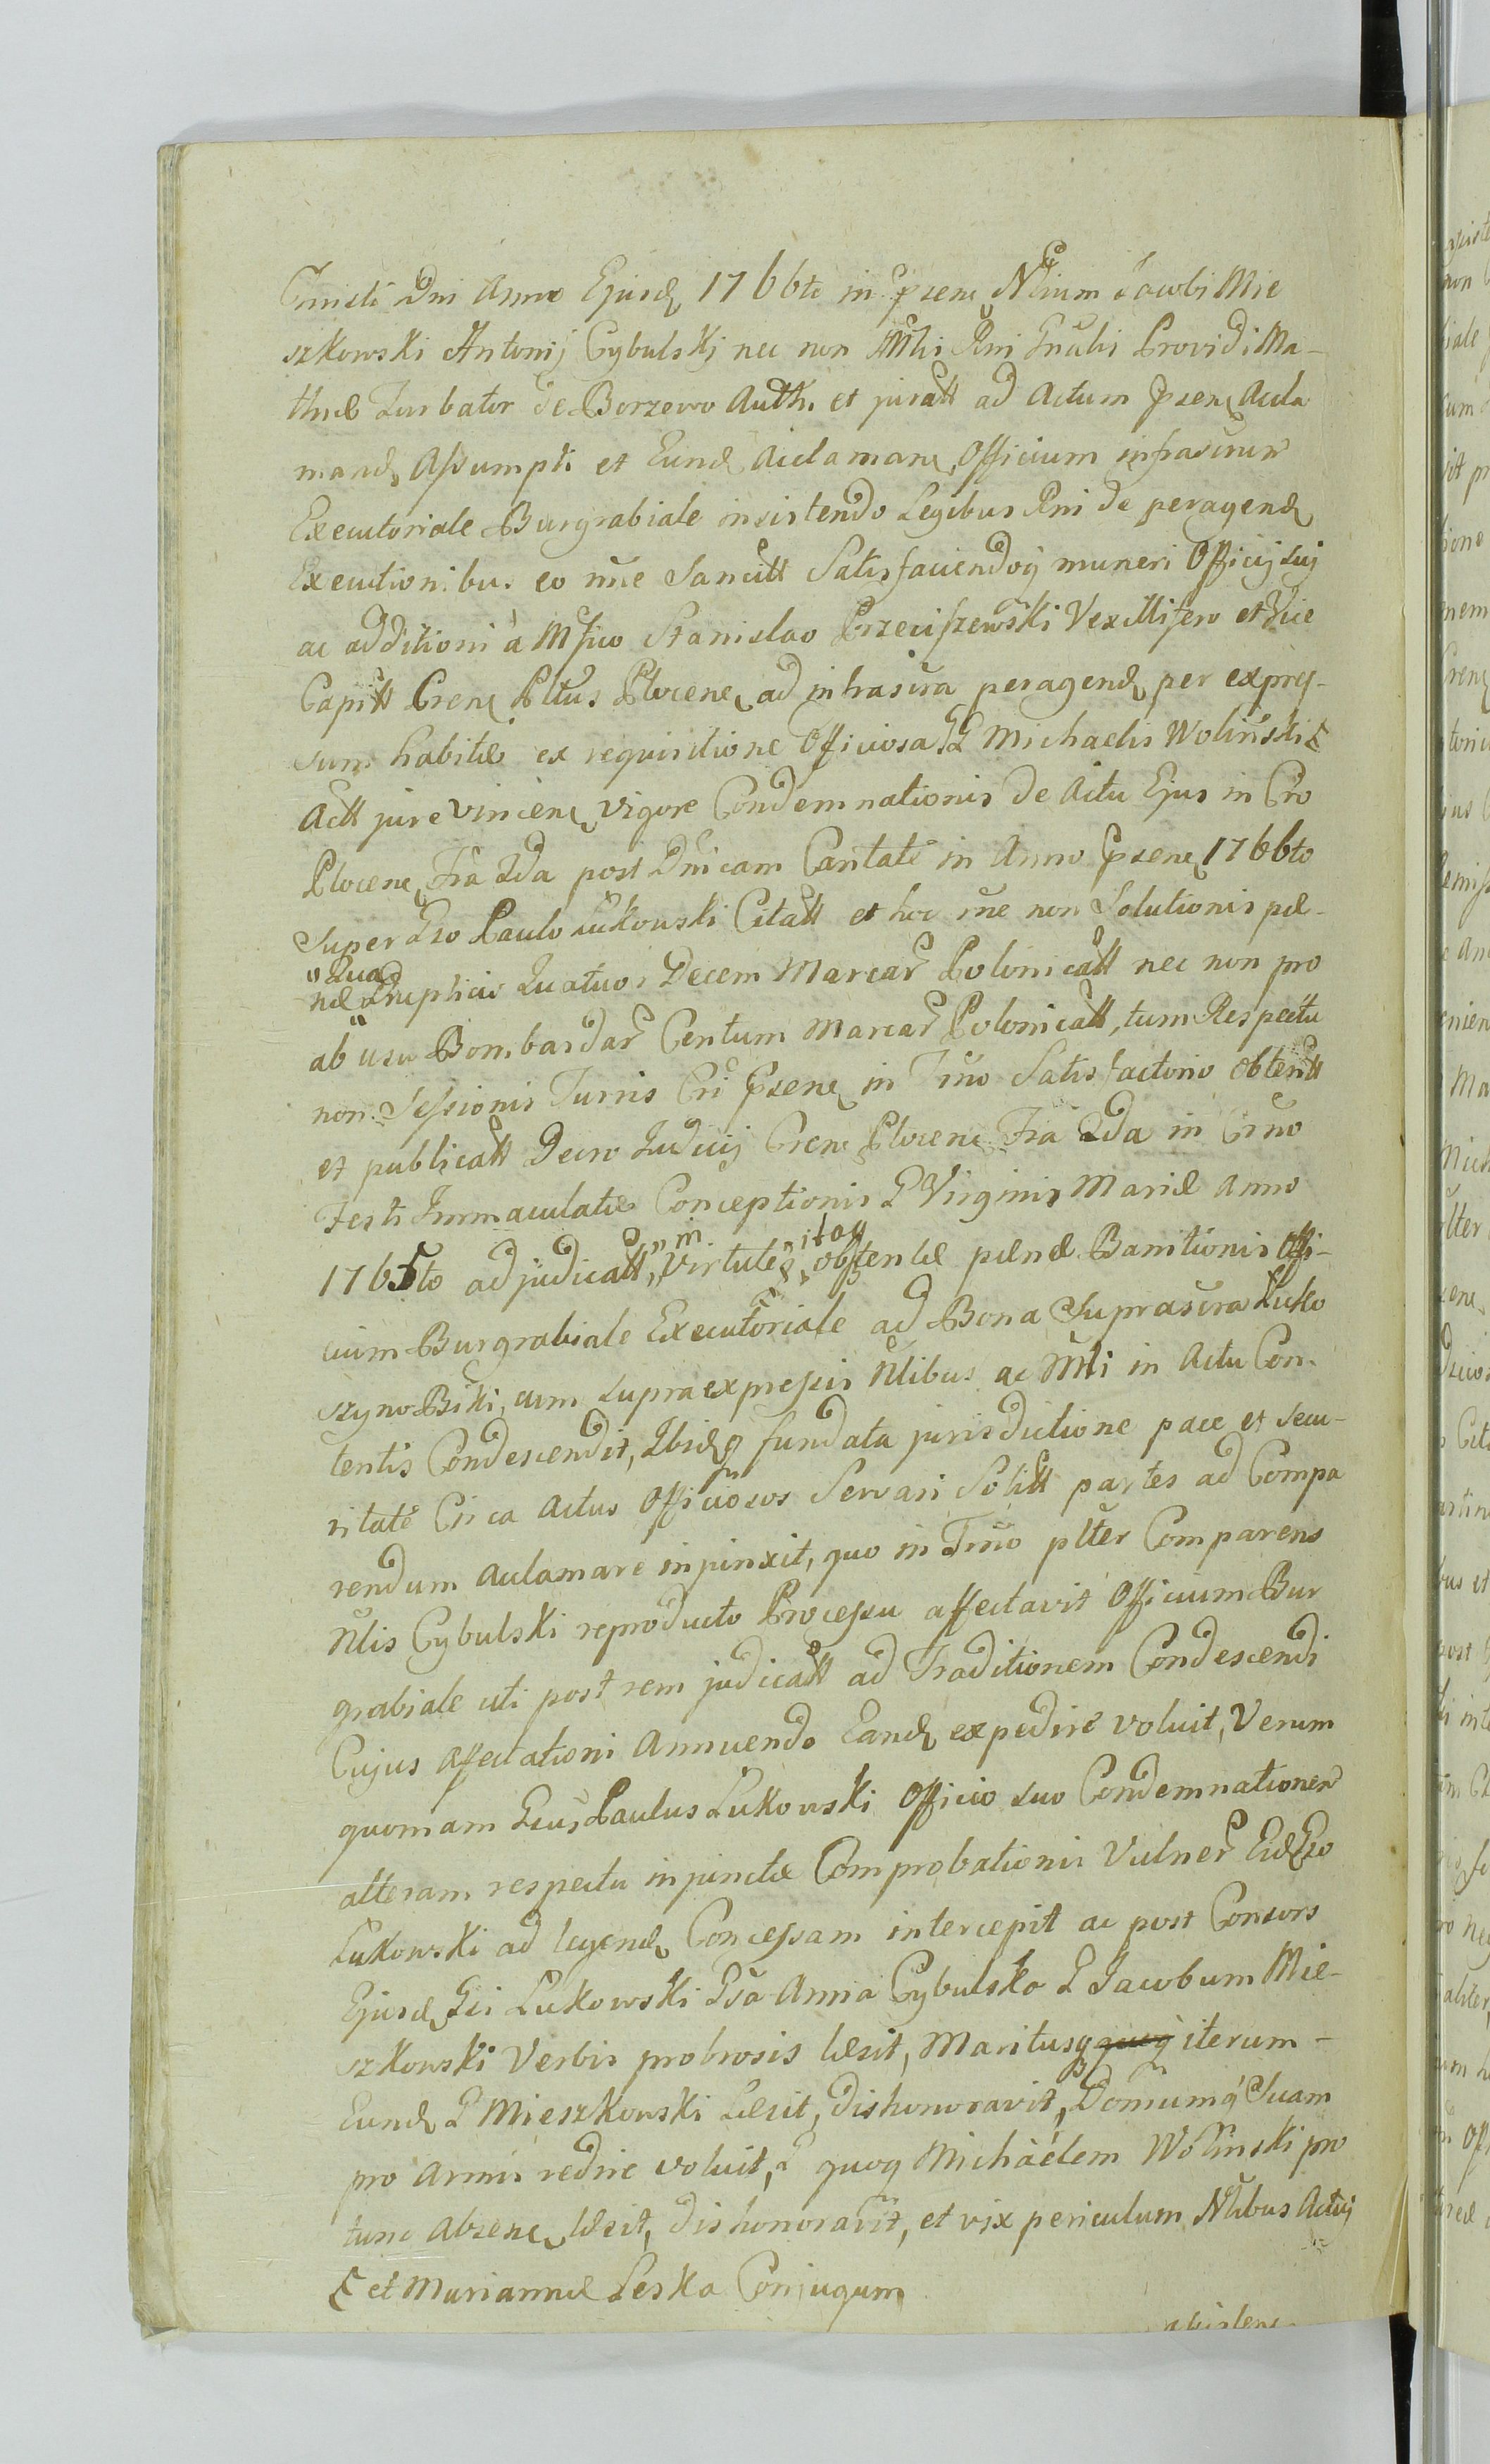 Cinisti Dni Anno Ejusd 1766to in Psene Nlium Jacobi Mie
szkowski Antonij Cybulskj nec non Mlri Rni Gnalis Providi Ma-
thiæ Turbator de Borzewo Auth. et juratt ad Actum Psene Acla
mand Assumpti et Eund Aclamane Officium infrascrum
Executoriale Burgrabiale insistendo Legibus Rni de peragend
Executionibus eo nne Sancitt Satisfaciendoq muneri Officij suj
ac additioni à Mfico Stanislao Przeciszewski Vexillifero et Vice
Capitt Crene Pltus Plocene ad infrascra peragend per expres-
sum habitæ ex requisitione Officiosa P Michaelis Woliński
Actt jure vincene vigore Condemnationis de Actu Ejus in Cro
Plocene Fria 2da post Dnicam Cantate in Anno Psene 1766to
super Gso Paulo Łukowski Citatt et hoc nne non Solutionis pæ-
"Quad
næ druplicis Quatuor Decem Marcar Polonicatt nec non pro
ab usu Bombardar Centum Marcar Polonicatt, tum Respectu
non Sessionis Turris Cri Psene in Trno Satisfactorio obtentt
et publicatt Decro Judicij Crene Plocene Fria 2da in Crno
Festi Immaculatæ Conceptionis B Virginis Mariæ Anno
"in "itaq
1765to adjudicatt, Virtute obtentæ pænæ Banitionis Offi-
cium Burgrabiale Executoriale ad Bona Suprascra Łuko
szyno Biki, cum supraexpressis Nlibus ac Mlri in Actu Con-
tentis Condescendit, Ibidq fundata jurisdictione pace et secu-
ritate Circa Actus Officiosos Servari Solitt partes ad Compa
rendum aclamare injunxit, quo in Trno plter Comparens
Nlis Cybulski reproducto Processu affectavit Officium Bur
grabiale uti post rem judicatt ad Traditionem Condescendi
Cujus affectationi Annuendo Eand expedire voluit, Verum
quoniam Gsus Paulus Łukowski Officio suo Condemnationem
alteram respectu injunctæ Comprobationis Vulner Eid Gso
Łukowski ad legend Concessam intercepit ac post Consors
Ejusd Gsi Łukowski Gsa Anna Cybulska P Jacobum Mie-
szkowski Verbis probrosis læsit, Maritusq iterum -
Eund P Mieszkowski Læsit, dishonoravit, Domumq Suam
pro Armis redire voluit, P quoq Michaëlem Wolinski pro
tunc Absene læsit, dishonoravit, et vix periculum Nlibus Actuj
et Mariannæ Leska Conjugum